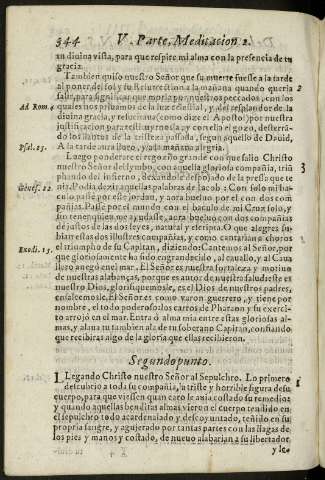 344 V. Parte, Meditacion 2.
tu divina vista, para que respire mi alma con la presencia de tu
gracia.
Tambien quiso nuestro Señor que su muerte fuesse a la tarde
al poner del sol y su Resurrection a la mañana quando queria
salir, para significar que moria por nuestros peccados, con los
quales nos privamos de la luz celestial, y del resplandor de la
divina gracia, y resuscitava (como dize el Apostol) por nuestra
justificacion para restituyrnosla, y con ella el gozo, desterrando
los llantos de la tristeza passada, segun aquello de David,
A la tarde aura lloro, y a la mañana alegria.
Luego ponderare el regozijo grande con que salio Christo
nuestro Señor del Lymbo, con aquella gloriosa compañia, triumphando
del infierno, dexandole despojado de la presa que tenia.
Podia dezir aquellas palabras de Iacob: Con solo mi baculo
passè por este jordan, y aora buelvo por el con dos compañias.
Passè por el mundo con el baculo de mi Cruz solo, y
sin tener quien me ayudasse, aora buelvo con dos compañias
de justos de las dos leyes, natural y escripta. O que alegres subian
estas dos illustres compañias, y como cantarian a choros
el triumpho de su Capitan, diziendo: Cantemos al Señor, por
que gloriosamente ha sido engrandecido, al cavallo, y al Cavallero
anegò en el mar. El Señor es nuestra fortaleza y motivo
de nuestras alabanças, porque es autor de nuestra salud: este es
nuestro Dios, glorifiquemosle, es el Dios de nuestros padres,
ensalcemosle. El Señor es como varon guerrero, y tiene por
nombre, el todo poderoso: los carros de Pharaon y su exercito
arrojò en el mar. Entra ô alma mia entre estas gloriosas almas,
y alaua tu tambien a la de su soberano Capitan, confiando
que recibiras algo de la gloria que ellas recibieron.
Segundo punto.
LLegando Christo nuestro Señor al Sepulchro. Lo primero
descubrio a toda su compañia, la triste y horrible figura de su
cuerpo, para que viessen quan caro le avia costado su remedio:
y quando aquellas benditas almas vieron el cuerpo tendido en
el sepulchro todo acardenalado y descoyuntado, teñido en su
propria sangre, y agujerado por tantas partes con las llagas de
los pies y manos y costado, de nuevo alabarian a su libertador
Ad Rom. 4.
Psal. 29.
Genes. 32.
Exodi. 15.
2
3
1